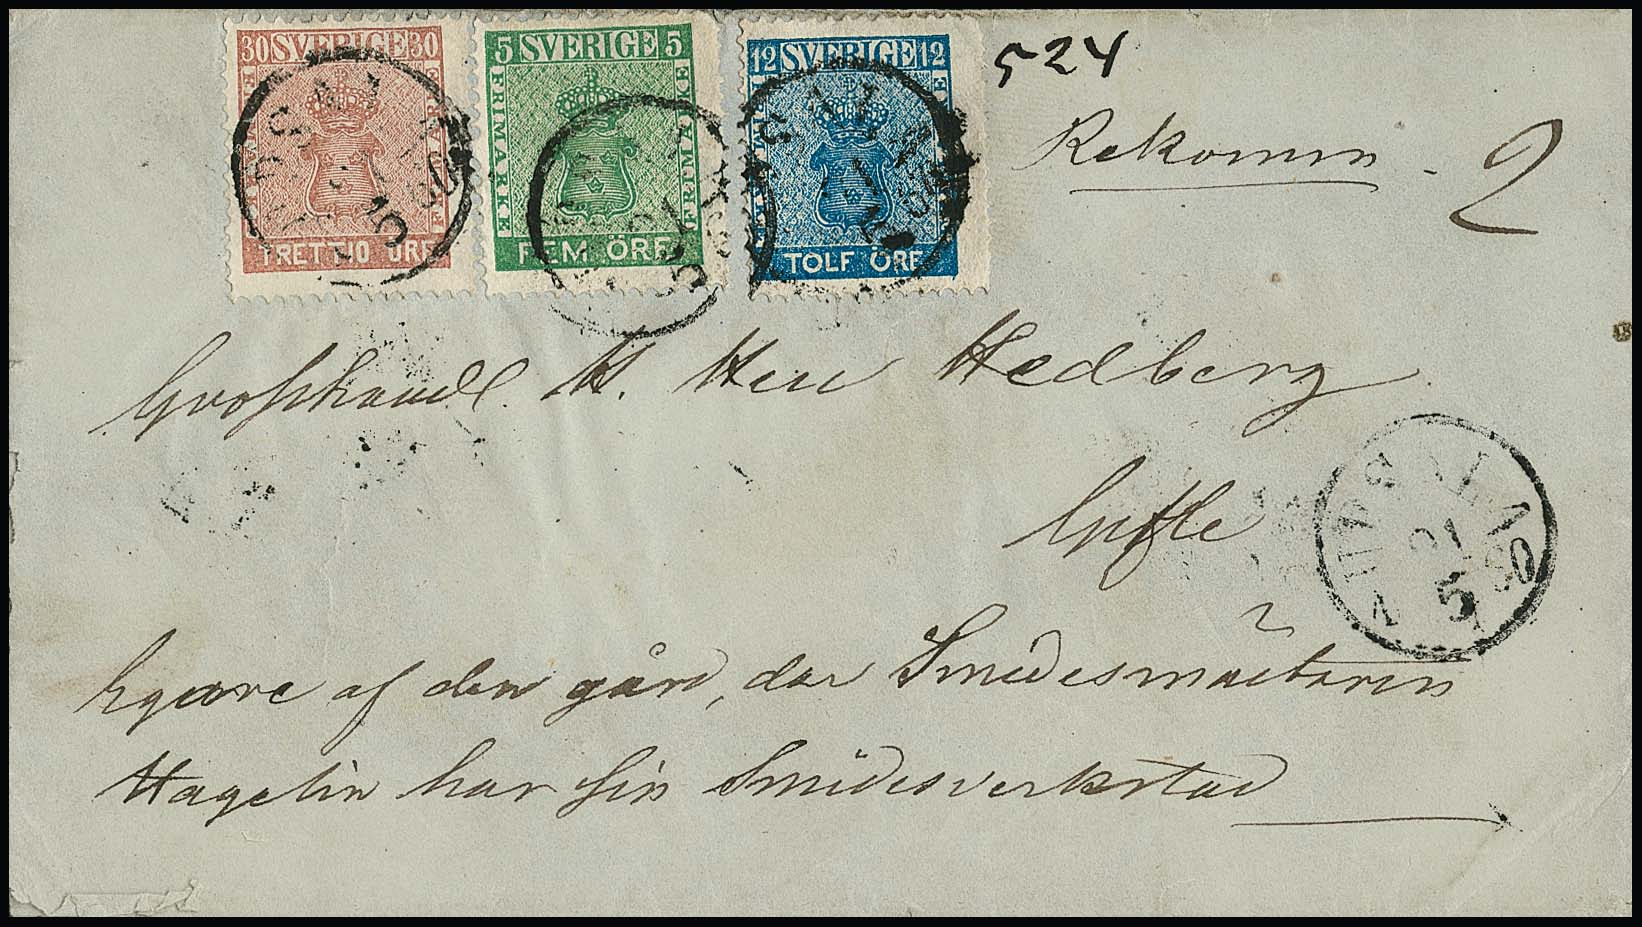 30 SVERIGE 30
FRIMÄRKE
TRETTIO ÖRE
5 SVERIGE 5
FRIMÄRKE FRIMÄRKE
FEM ÖRE
12 SVERIGE 12
FRIMÄRKE
TOLF ÖRE
524
Rekomm - 2
Grosshandl. H. Herr Hedberg
Gefle
UPSALA
21
5
1860
Egare af den gård, der Smidesmästaren
Hagelin har sin Smidesverkstad